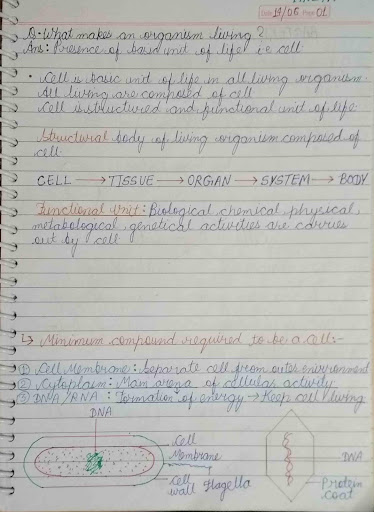 Date 19/06 Page 01
Q. What makes an organism living?
Ans: Presence of basic unit of life i.e cell
• Cell is basic unit of life in all living organism.
All living are composed of cell
Cell is structured and functional unit of life.
Structural body of living organism composed of
cell.
CELL → TISSUE → ORGAN → SYSTEM → BODY
Functional Unit: Biological, chemical, physical,
metabological, genetical activities are carries
out by cell
↳ Minimum compound required to be a cell:-
① Cell Membrane: Separate cell from outer environment
② Cytoplasm: Main arena of cellular activity
③ DNA/RNA: Formation of energy → Keep cell living
DNA
Cell
Membrane
Cell
wall Flagella
DNA
Protein
coat